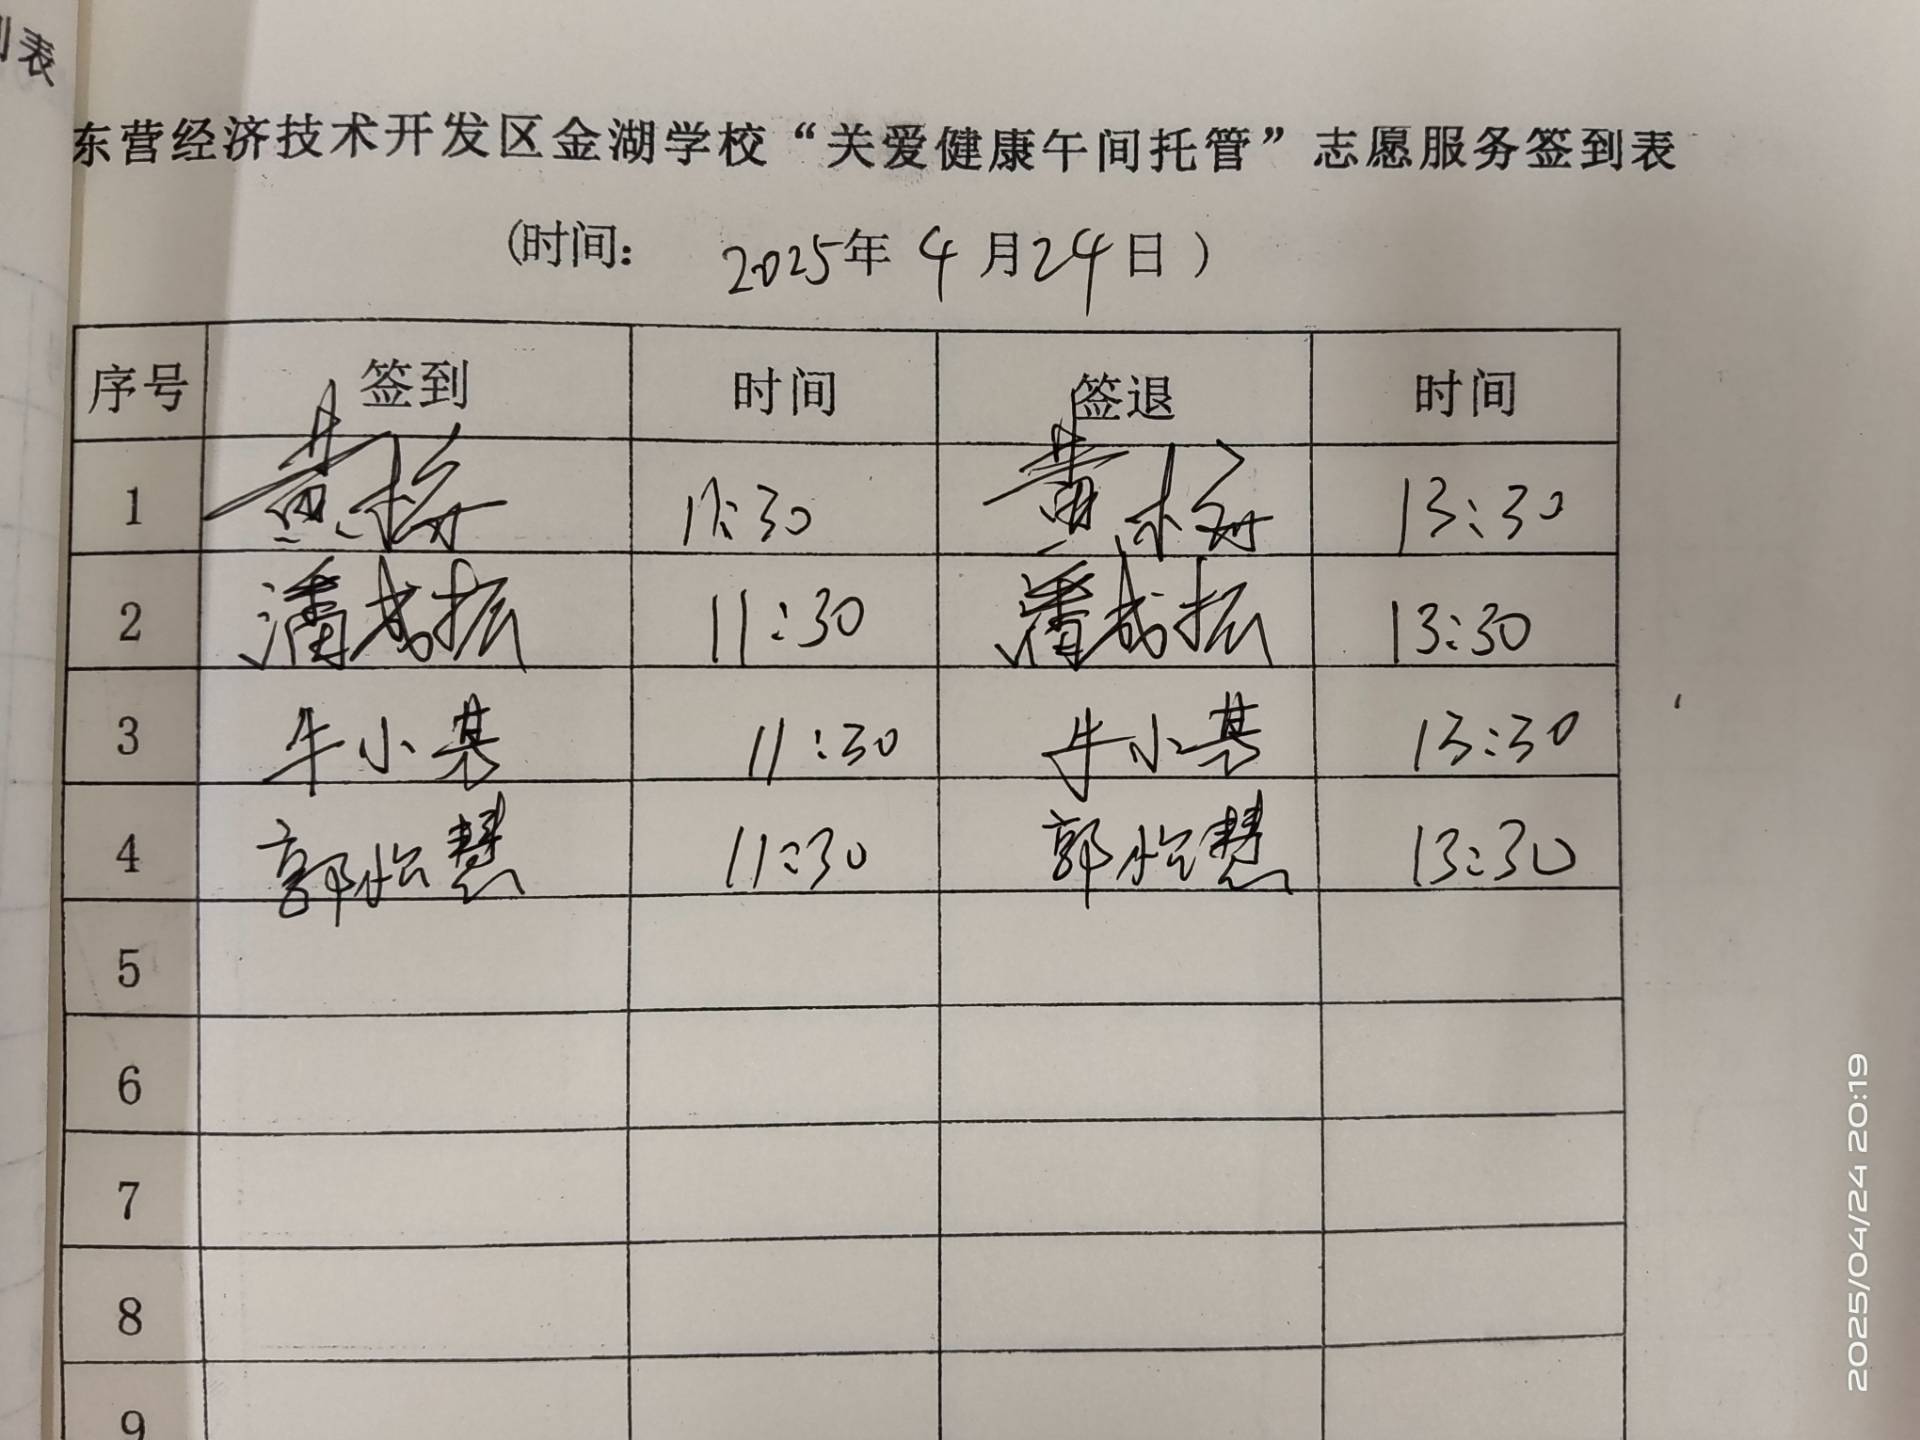 到表
东营经济技术开发区金湖学校“关爱健康午间托管”志愿服务签到表
(时间: 2025年 4月24日)
序号 签到 时间 签退 时间
1 黄梅 11:30 黄梅 13:30
2 潘成振 11:30 潘成振 13:30
3 牛小某 11:30 牛小某 13:30
4 郭怡慧 11:30 郭怡慧 13:30
5
6
7
8
9
2025/04/24 20:19